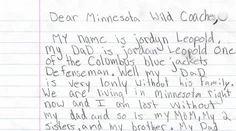 Dear Minnesota Wild Coaches,
MY name is jordyn Leopold,
my DaD is jordan Leopold one
of the Columbus blue jackets
Defenseman. Well my DaD
is very lonly without his family.
We are living in Minnesota right
now and I am lost without
my dad and so is my MoM, My 2
sisters, and my brother. My Dad